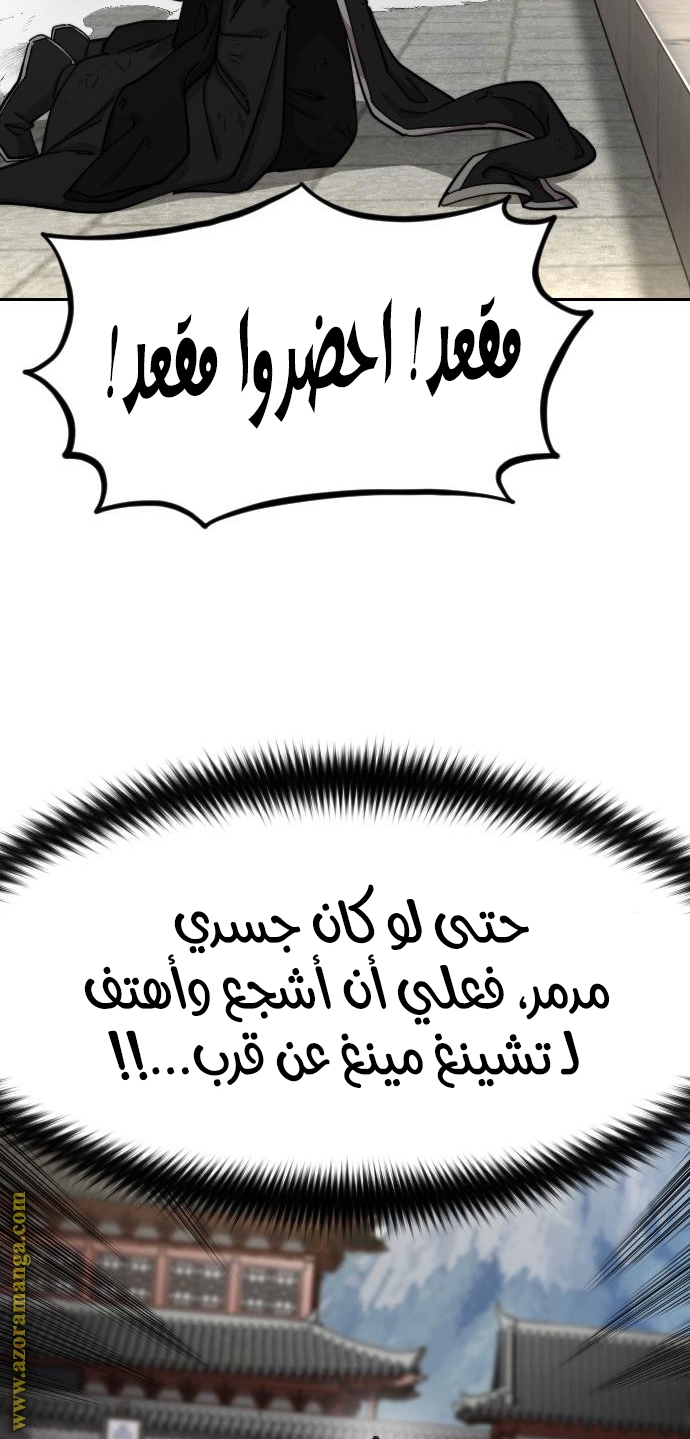 مقعد! احضروا مقعد!
حتى لو كان جسري
مرمر، فعلي أن أشجع وأهتف
لـ تشينغ مينغ عن قرب...!!
www.azoramanga.com